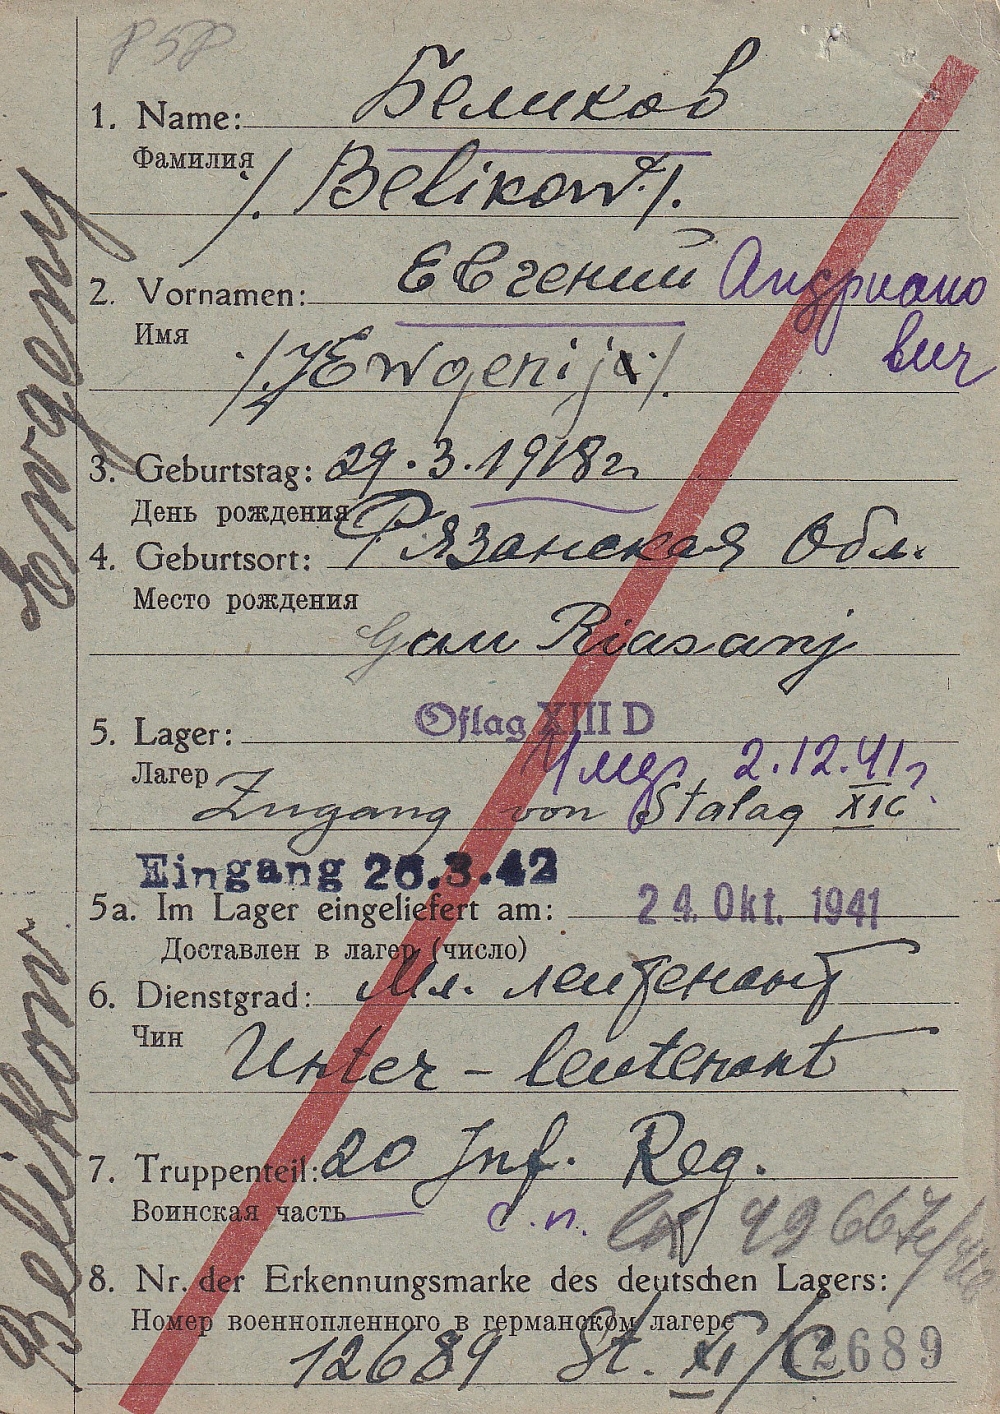 1. Name: Беликов
Фамилия
/. Belikow ./.
2. Vornamen: Евгений Андрианович
Имя
./. Ewgenij ./.
3. Geburtstag: 29.3.1918г.
День рождения
4. Geburtsort: Рязанская Обл.
Место рождения
Gau Riasanj
5. Lager: Oflag XIII D
Лагер 2.12.41г.
Zugang von Stalag XI C
Eingang 26.3.42
5a. Im Lager eingeliefert am: 24. Okt. 1941
Доставлен в лагер (число)
6. Dienstgrad: Мл. лейтенант
Чин
Unter-leutenant
7. Truppenteil: 20 Inf. Reg.
Воинская часть с.п.
8. Nr. der Erkennungsmarke des deutschen Lagers:
Номер военнопленного в германском лагере
12689 St. XI/C 12689
Belikow Ewgeny